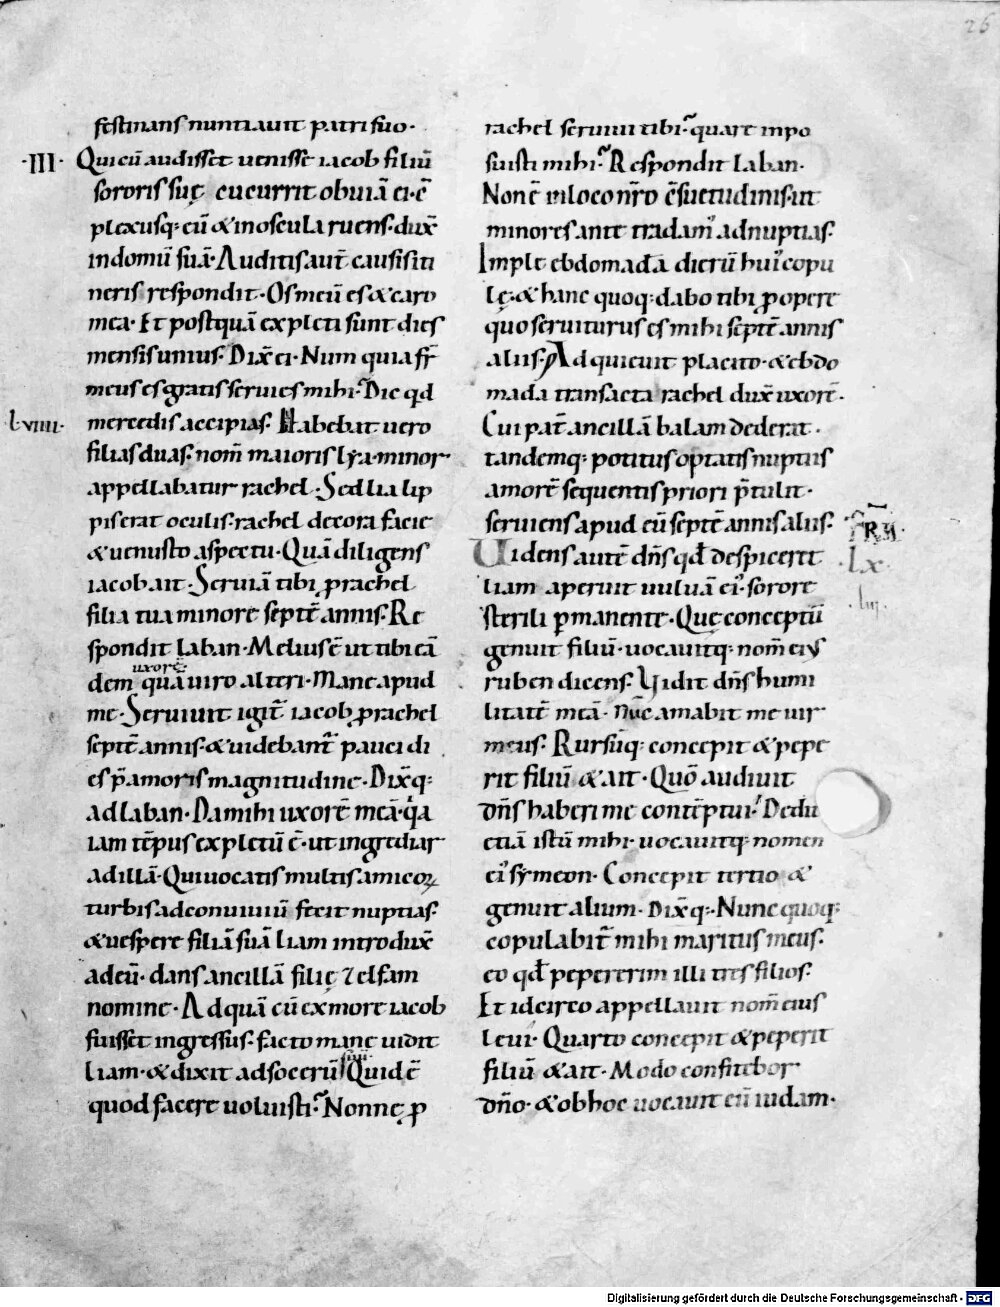 26
festinans nuntiauit patri suo·
·III· Qui cū audisset uenisse iacob filiū
sororis suę cucurrit obuiā ei·c̄
plexusq; eū &in oscula ruens·dux̄
in domū suā·Auditis aut̄ causis iti
neris respondit·Os meū es &caro
mea·Et postquā expleti sunt dies
mensis unius·Dix̄ ei·Num quia fr̄
meus es gratis seruies mihi·Dic qd
·lviiii· mercedis accipias·Habebat uero
filias duas·nom̄ maioris lya·minor
appellabatur rachel·Sed lia lip
pis erat oculis·rachel decora facie
&uenusto aspectu·Quā diligens
iacob ait·Seruiā tibi ꝓ rachel
filia tua minore septē annis·Re
spondit laban·Melius ē ut tibi eā
uxorē
dem quā uiro alteri·Mane apud
me·Seruiuit igit̄ iacob ꝓ rachel
septē annis·&uidebant̄ pauci di
es p̄ amoris magnitudine·Dix̄q;
ad laban·Da mihi uxorē meā·qa
iam tēpus expletū ē·ut ingrediar
ad illā·Qui uocatis multis amicoꝝ
turbis ad conuiuiū fecit nuptias·
&uespere filiā suā liam introdux̄
ad eū·dans ancillā filię zelfam
nomine·Ad quā cū ex more iacob
fuisset ingressus·facto mane uidit
liam·&dixit ad socerū Quid ē
quod facere uoluisti·Nonnę ꝓ
rachel seruiui tibi·quare inpo
suisti mihi·Respondit laban·
Non ē in loco nr̄o c̄suetudinis·ut
minores ante tradam' ad nuptias·
Imple ebdomadā dierū hui' copu
lę·&hanc quoq; dabo tibi ꝓ opere
quo seruiturus es mihi septē annis
aliis·Adquieuit placito·&ebdo
mada transacta rachel dux̄ uxorē·
Cui pat̄ ancillā balam dederat·
tandemq; potitus optatis nuptiis
amorē sequentis priori p̄tulit·
seruiens apud eū septē annis aliis·
Uidens autē dn̄s qđ despiceret
·lx·
liam aperuit uuluā ei'·sorore
·liii·
sterili ꝑmanente·Quę conceptū
genuit filiū·uocauitq; nom̄ eius
ruben dicens·Uidit dn̄s humi
litatē meā·nūc amabit me uir
meus·Rursūq; concepit &pepe
rit filiū &ait·Quō audiuit
dn̄s haberi me contēptui·Dedit
etiā istū mihi·uocauitq; nomen
ei' symeon·Concepit tertio &
genuit alium·Dix̄q;·Nunc quoq;
copulabit̄ mihi maritus meus·
eo qđ pepererim illi tres filios·
Et idcirco appellauit nom̄ eius
leui·Quarto concepit &peperit
filiū &ait·Modo confitebor
dn̄o·&ob hoc uocauit eū iudam·
Digitalisierung gefördert durch die Deutsche Forschungsgemeinschaft - DFG